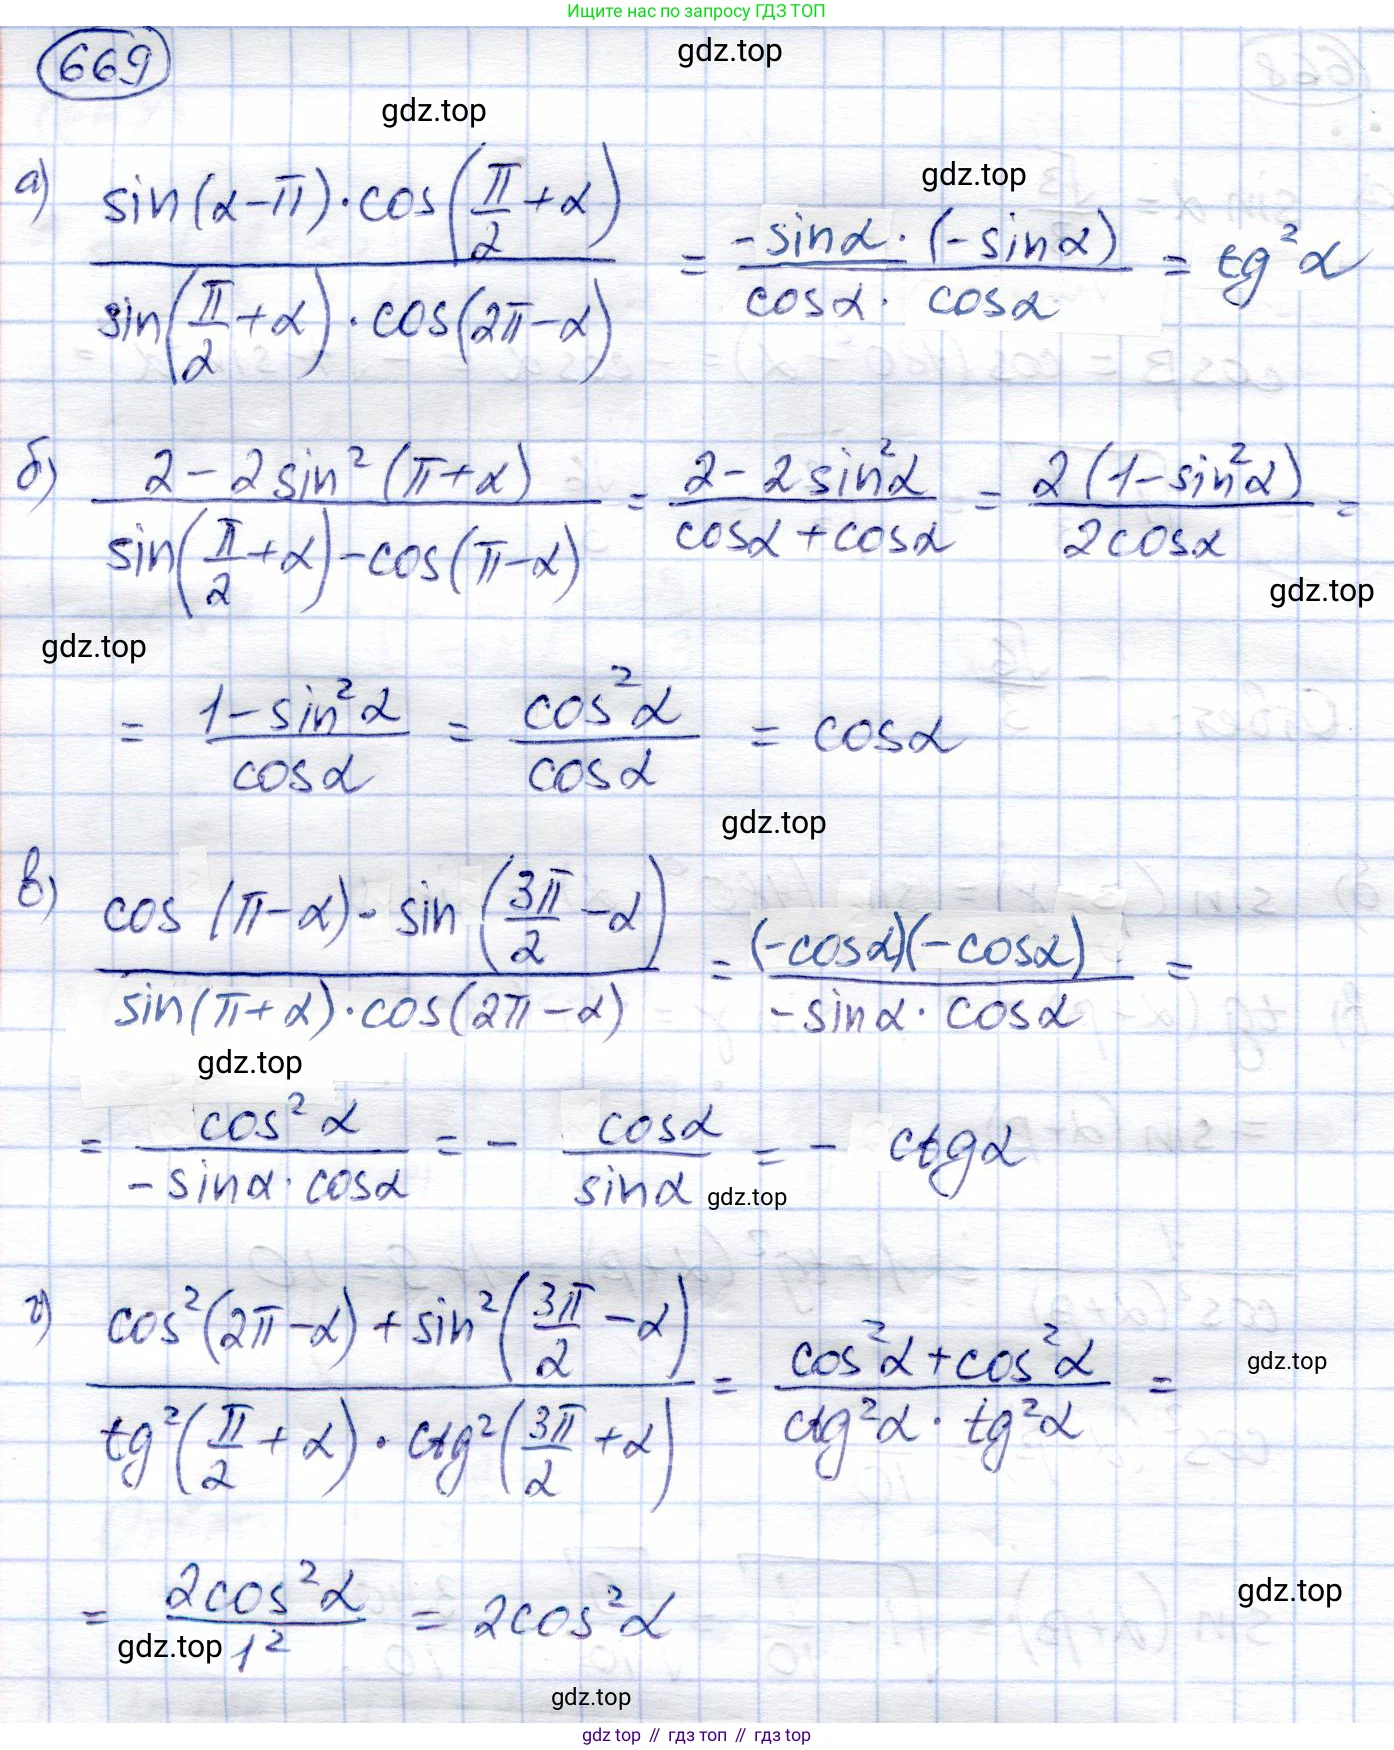 Ищите нас по запросу ГДЗ ТОП
669
gdz.top
gdz.top
gdz.top
а) sin(α−π)·cos(π/2+α) / sin(π/2+α)·cos(2π−α) = −sinα·(−sinα) / cosα·cosα = tg²α
б) 2−2sin²(π+α) / sin(π/2+α)−cos(π−α) = 2−2sin²α / cosα+cosα = 2(1−sin²α) / 2cosα =
gdz.top
gdz.top
= 1−sin²α / cosα = cos²α / cosα = cosα
gdz.top
в) cos(π−α)·sin(3π/2−α) / sin(π+α)·cos(2π−α) = (−cosα)(−cosα) / −sinα·cosα =
gdz.top
= cos²α / −sinα·cosα = − cosα / sinα = − ctgα
gdz.top
г) cos²(2π−α)+sin²(3π/2−α) / tg²(π/2+α)·ctg²(3π/2+α) = cos²α+cos²α / ctg²α·tg²α =
gdz.top
= 2cos²α / 1² = 2cos²α
gdz.top
gdz.top
gdz.top
gdz top // гдз топ // gdz top